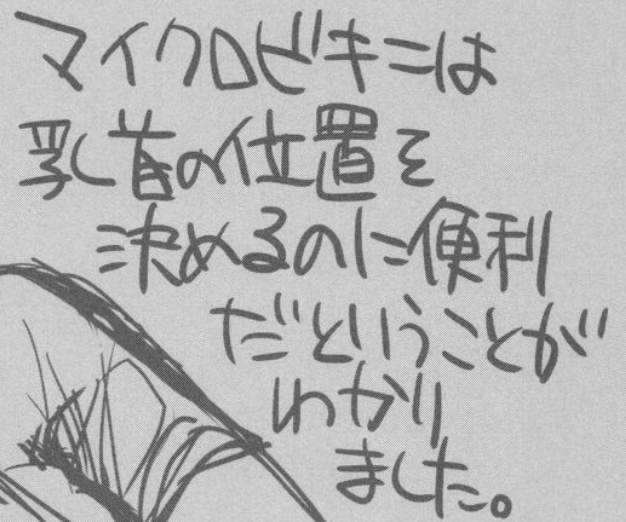 マイクロビキニは
乳首の位置を
決めるのに便利
だということが
わかり
ました。